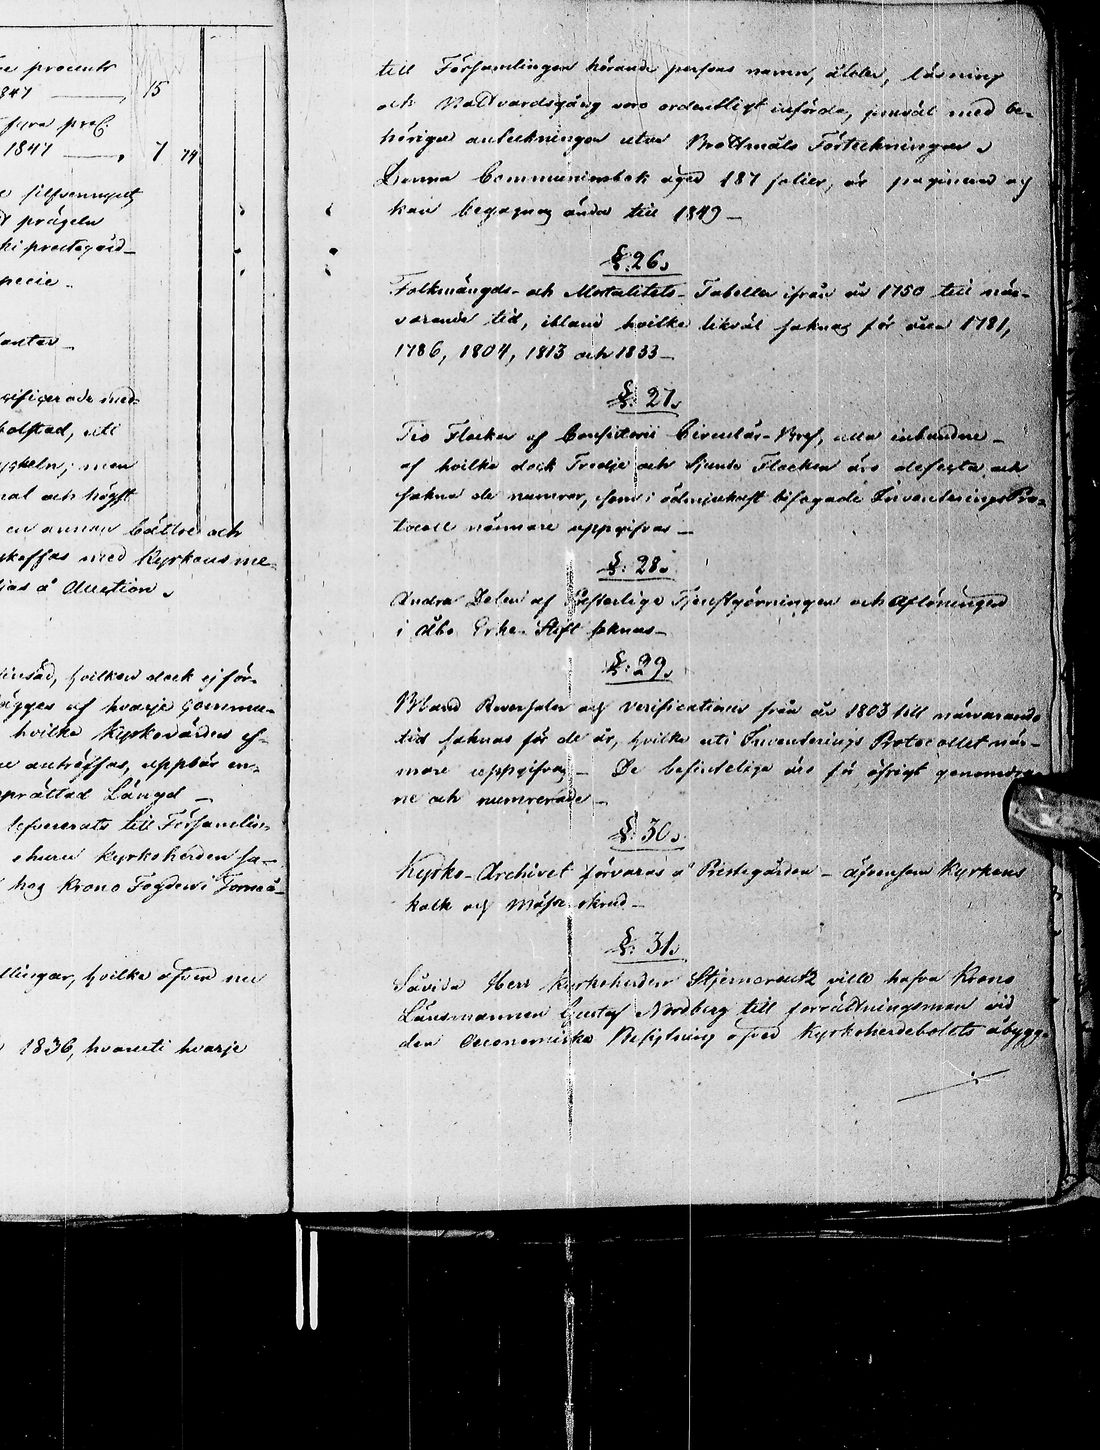 re procentr
1847 ——, 15
fyra proc.
1847 ——, 7 74
silfvermynt
prägeln
prestegård_
specie_
anter_
bolstad, uti
nyckeln, men
nal och högst
en annan bättre och
skaffas med Kyrkans me-
ljas å Auction.
insåd, hvilken dock ej för-
lägges af hvarje Commu-
hvilka Kyrkovärden ef-
re anträffas, uppbär en-
prättad Längd_
lefvererats till Församlin-
churu Kyrkoherden fa-
hos Krono Fogden i
llingar, hvilka äfven nu
1836, hvaruti hvarje
till Församlingen hörande persons namn, ålder, läsning
och Nattvardsgång voro ordentligt införda, jemväl med be-
höriga anteckningar utur Brottmåls Förteckningen.
Denna Communionbok äger 187 folier, är paginerad och
kan begagnas ända till 1849_
§. 26.
Folkmängds- och Mortalitets-Tabeller ifrån år 1750 till när-
varande tid, ibland hvilka likväl saknas för åren 1781,
1786, 1804, 1813 och 1833_
§. 27.
Tio Flockar af Consistorii Circulär-Bref, alla inbundne_
af hvilka dock Tredje och Sjunde Flocken äro defecta och
sakna de numror, som i ödmjukast bifogade Inventerings Pro-
tocoll närmare uppgifvas_
§. 28.
Andra Delen af Presterlige Tjenstgörningen och Aflöningen
i Åbo Erke-Stift saknas_
§. 29.
Bland Reversaler och Verificationer från år 1803 till närvarande
tid saknas för de år, hvilka uti Inventerings Protocollet när-
mare uppgifvas_ De befinteliga äro för öfrigt genomdrag-
ne och numrerade_
§. 30.
Kyrko-Archivet förvaras å Prestegården_ äfvensom Kyrkans
kalk och Mässe skrud_
§. 31.
Såvida Herr Kyrkoherden Stjerncreutz ville hafva Krono
Länsmannen Gustaf Nordberg till förrättningsman vid
den Oeconomiska Besigtning öfver Kyrkoherdebolets åbygg-